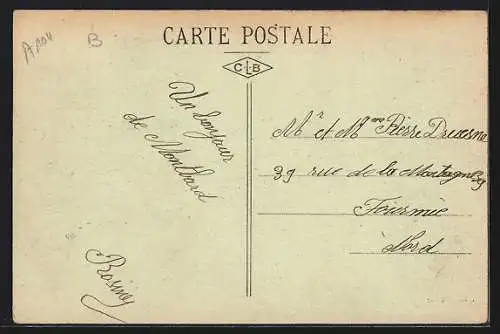 A1104
B
CARTE POSTALE
CLB
Un bonjour
de Montbard
Rosiney
Mr et Mme Pierre Ducesne
39 rue de la Montagne 39
Fourmie
Nord